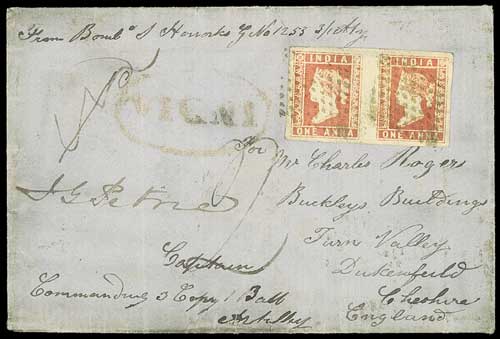 From Bombr J Horrocks No 1255 3/ Arty
INDIA INDIA
ONE ANNA ONE ANNA
INDIA
For
Mr Charles Rogers
Buckleys Buildings
Turn Valley
Dukenfield
Cheshire
England
J G Petrie
Captain
Commanding 3 Copy 1 Batt
Artillry